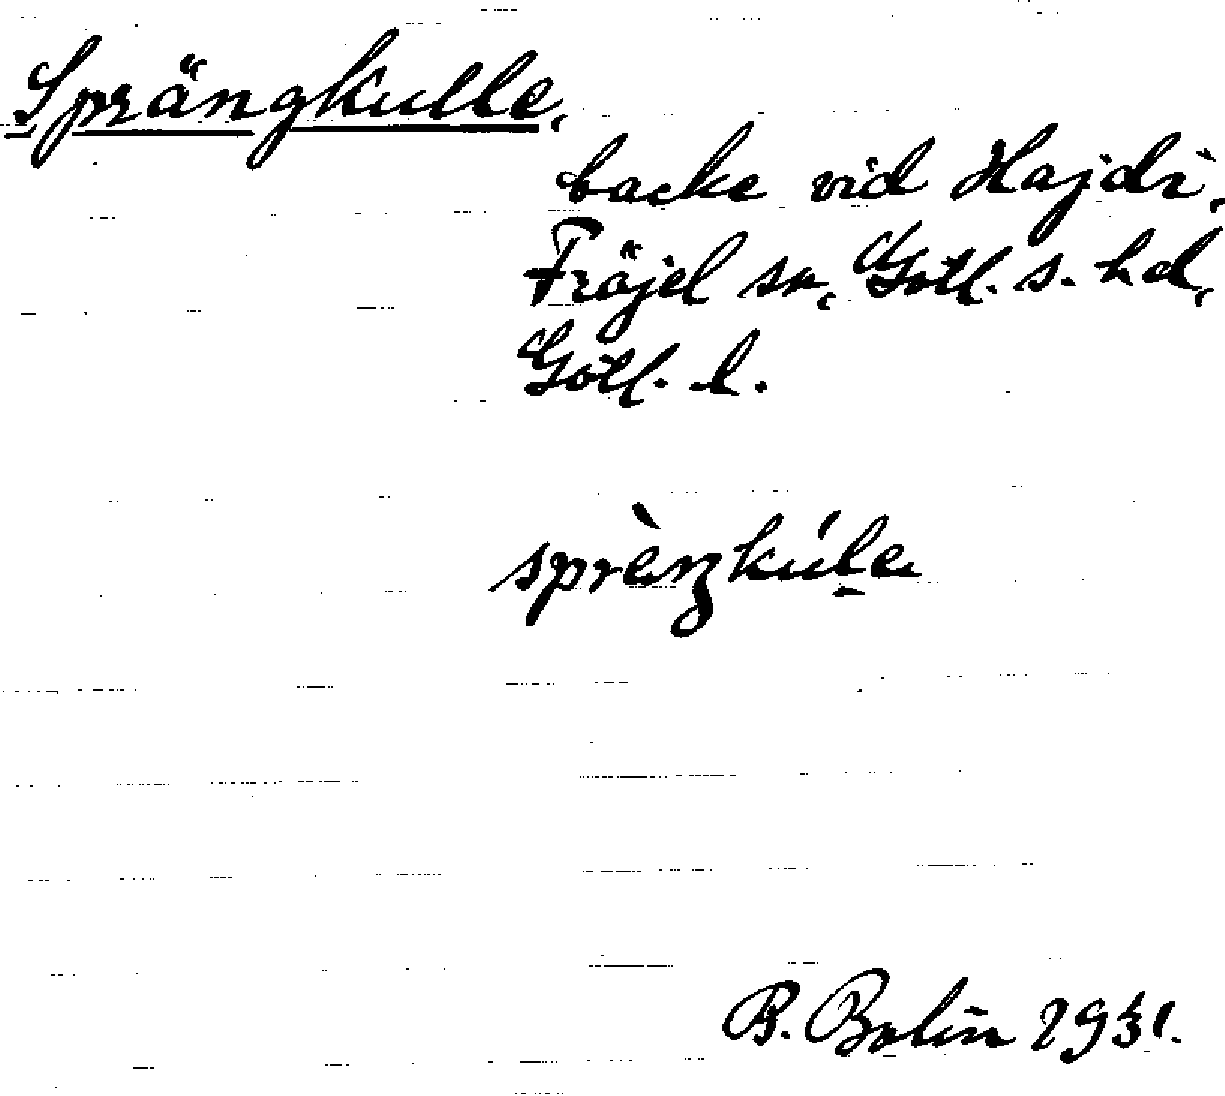 Sprängkulle,
backe vid Hajdi,
Fröjel sn, Gotl. s. hd,
Gotl. l.
sprèŋkúle
B. Bolin 1931.